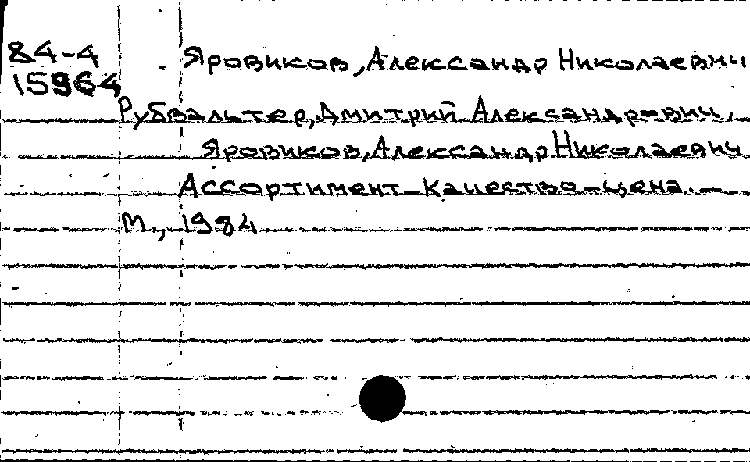 84-4
15964
Яровиков, Александр Николаевич
Рубвальтер, Дмитрий Александрович,
Яровиков, Александр Николаевич
Ассортимент-качество-цена.-
М., 1984